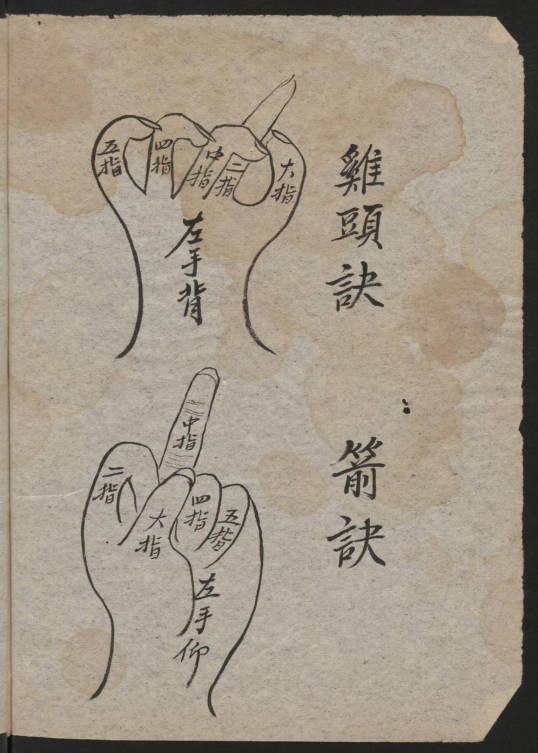 雞頭訣
大指
二指
中指
四指
五指
左手背
箭訣
中指
二指
大指
四指
五指
左手仰